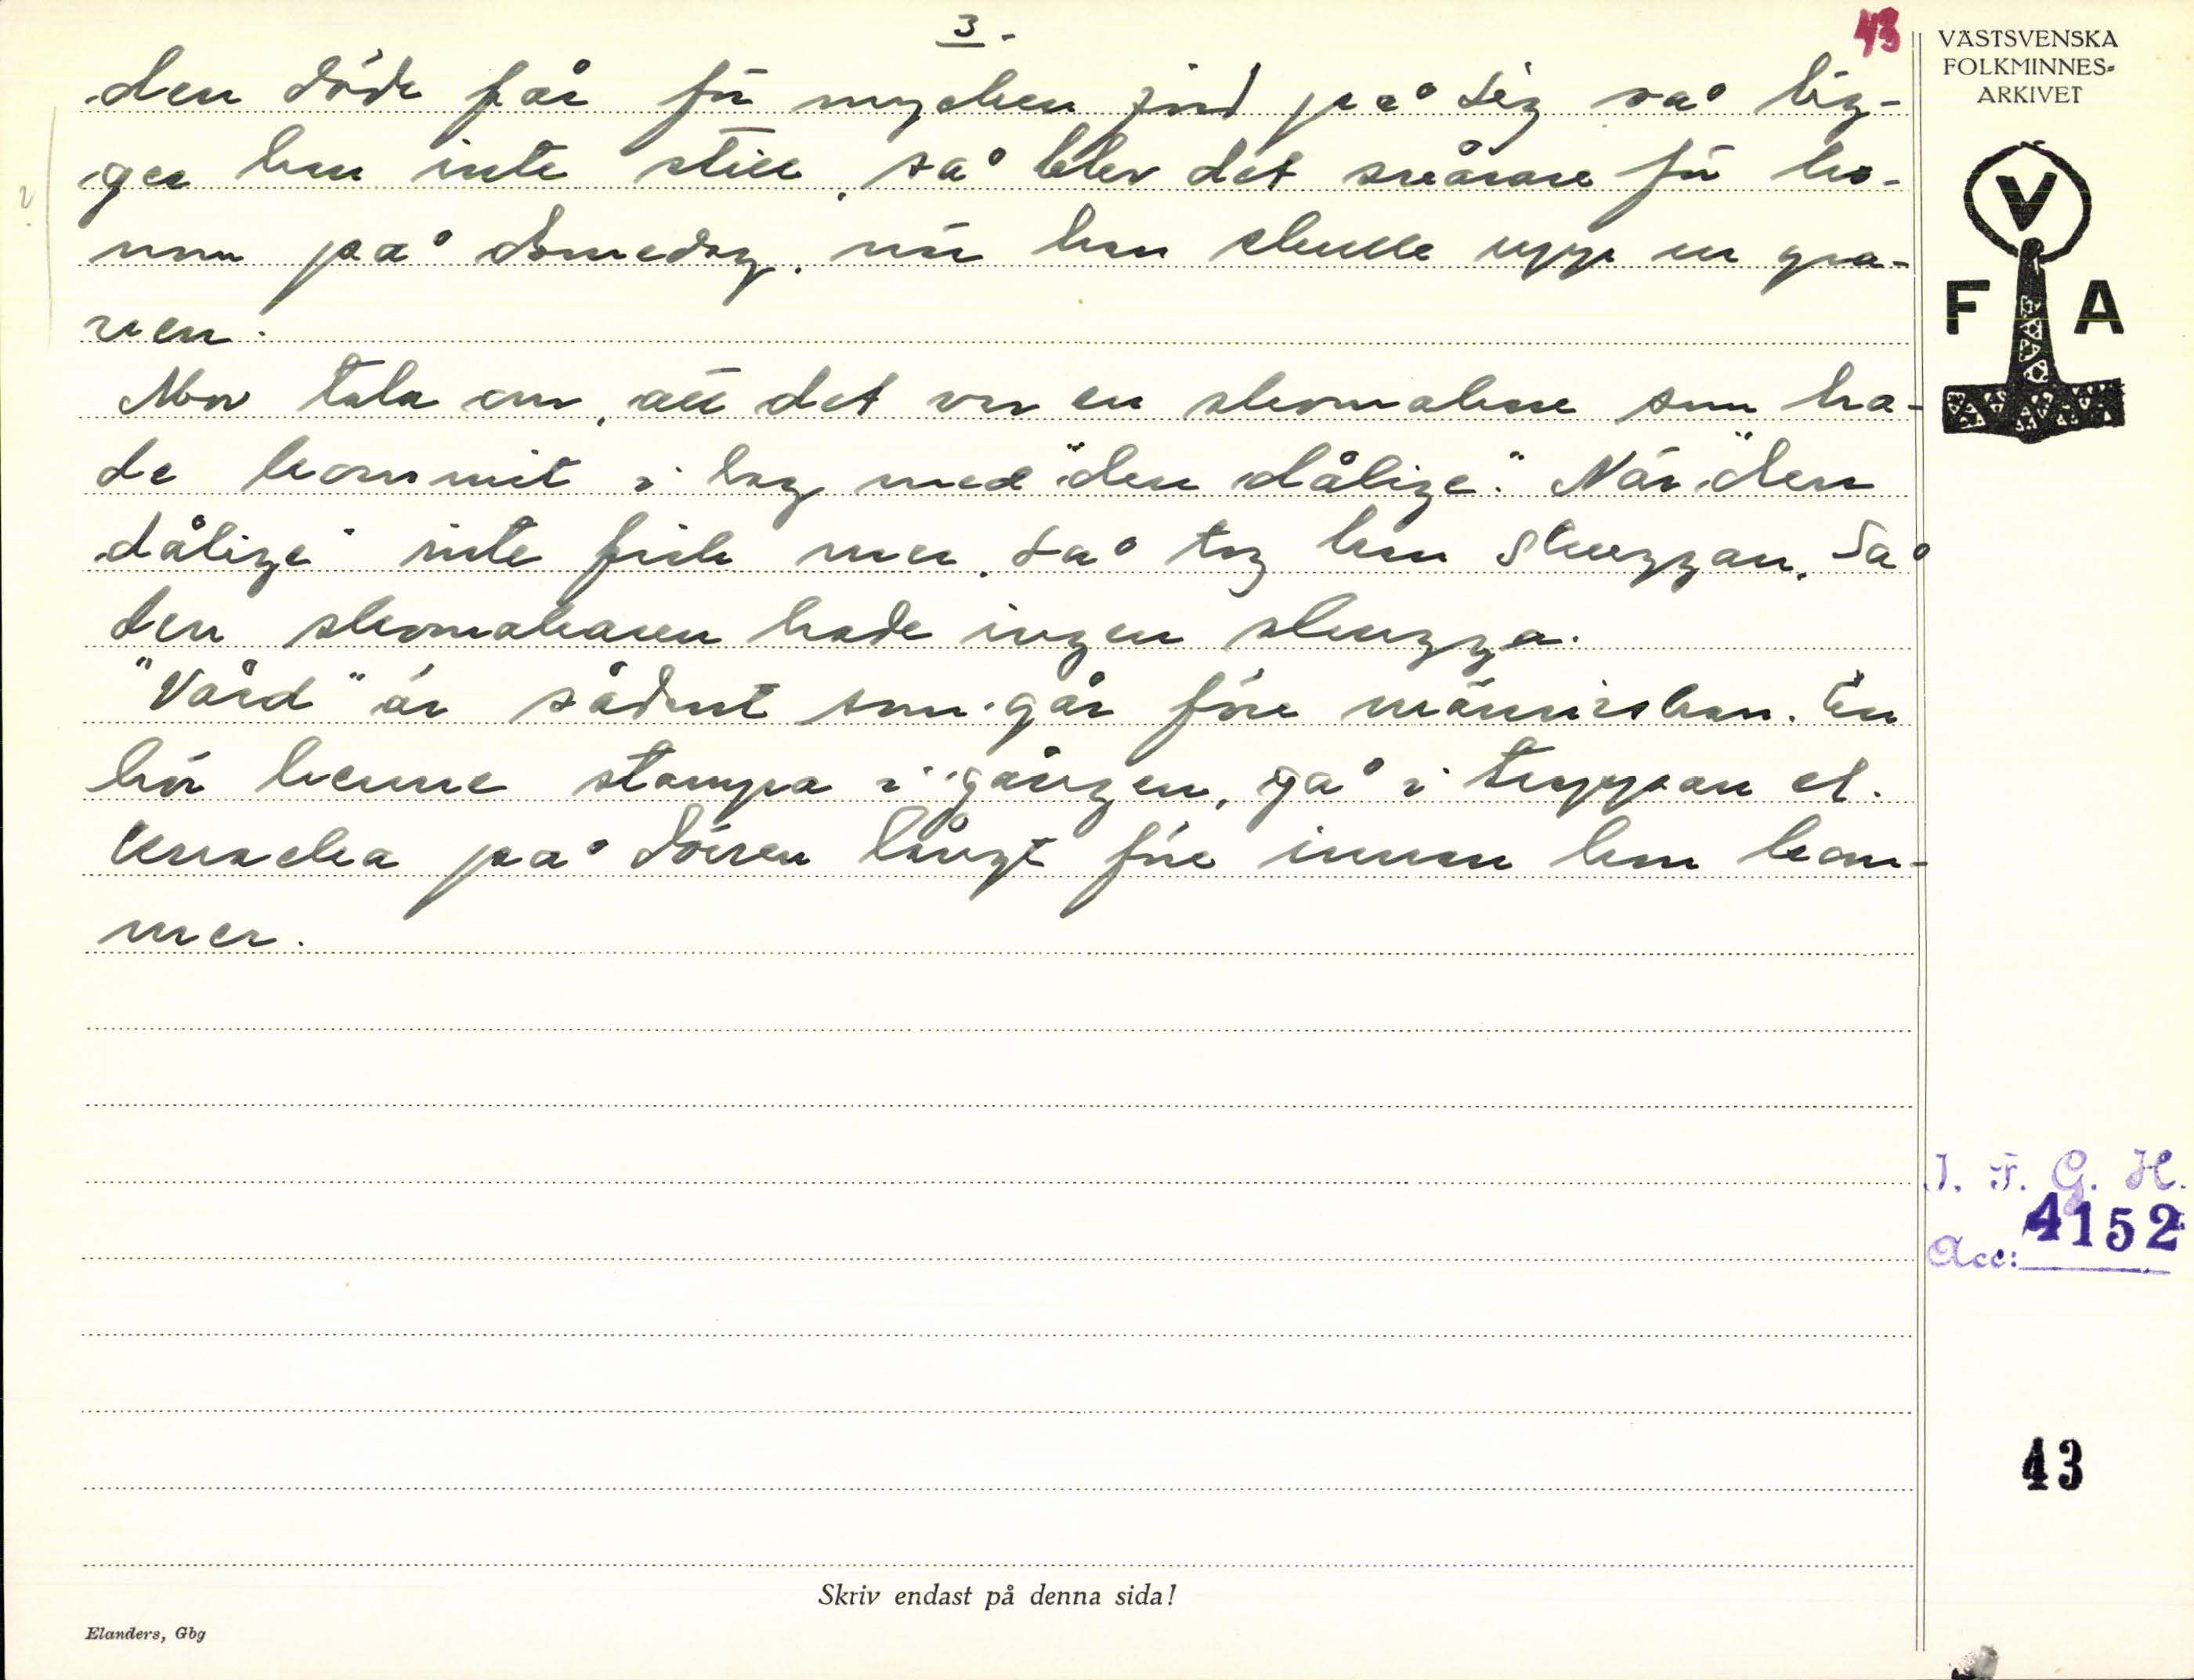 3.
43
den döde får för mycken jord på sig så lig-
ger han inte still, så blev det svårare för ho-
nom på domedag, när han skulle upp ur gra-
ven.
Mor tala om, att det var en skomakare som ha-
de kommit i lag med "den dålige". När "den
dålige" inte fick mer, så tog han skuggan. Så
den skomakaren hade ingen skugga.
"Vård" är sådant som går före människan. En
hör henne stampa i gången, gå i trappan el.
knacka på dörren långt före innan han kom-
mer.
VÄSTSVENSKA
FOLKMINNES-
ARKIVET
V
F A
I. F. G. H.
Acc: 4152
43
Skriv endast på denna sida!
Elanders, Gbg